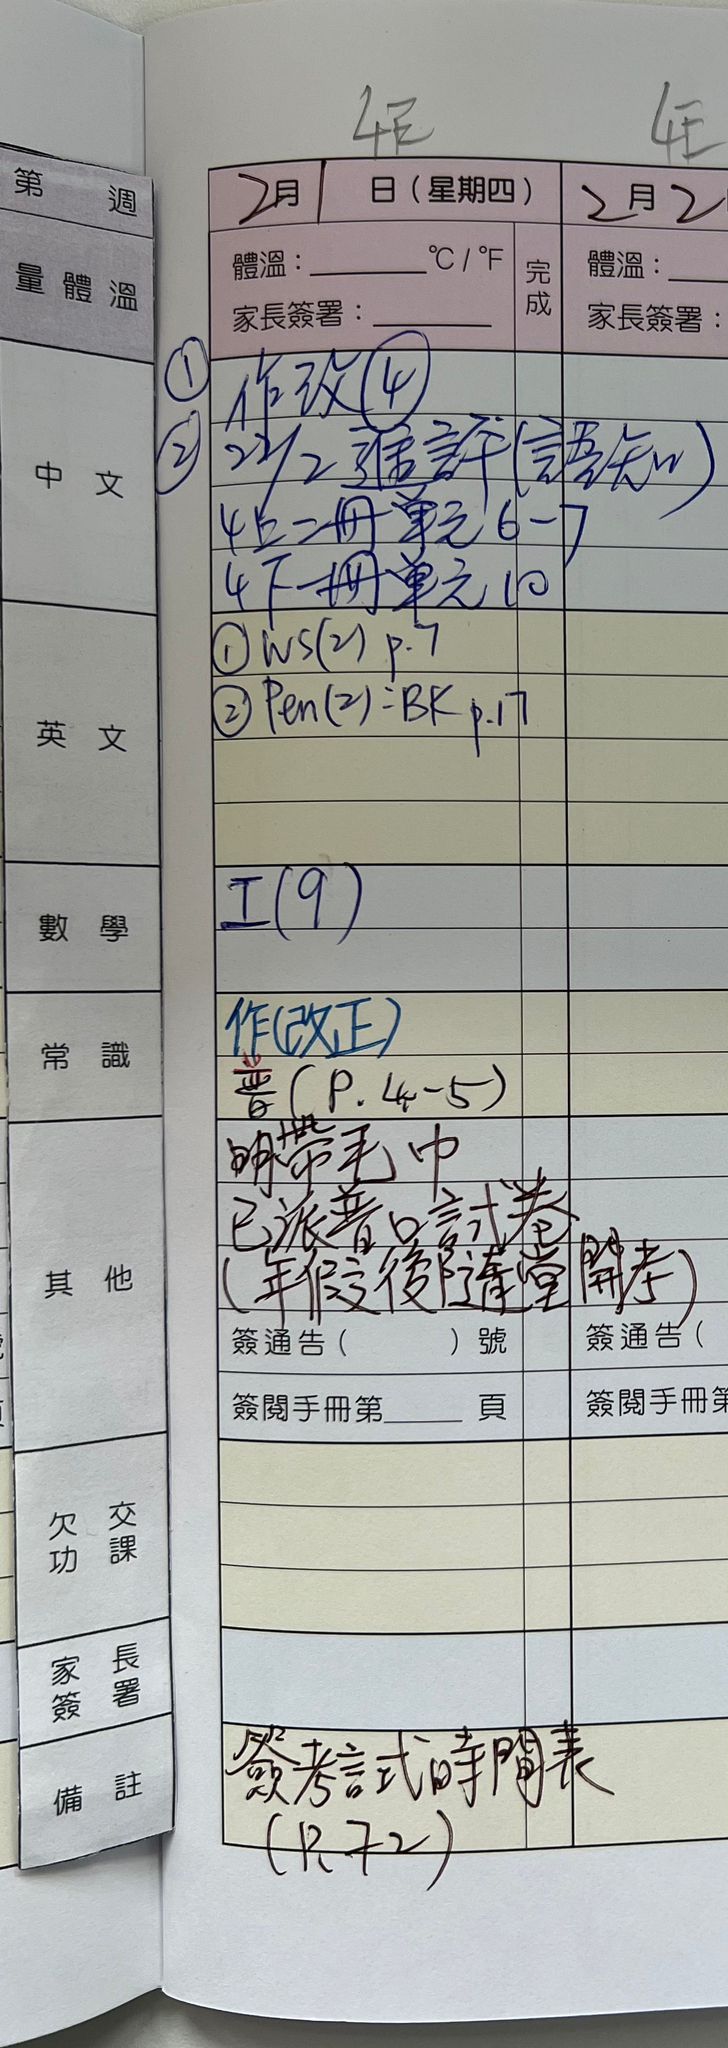 4E
4E
第 週
2月1日(星期四)
2月2
量體溫
體溫：______°C/°F
完成
體溫：
家長簽署：______
家長簽署：
中文
① 作改④
② 22/2 進評(語知)
4上二冊單元6-7
4下一冊單元10
英文
① WS(2) p.7
② Pen(2):BK p.17
數學
工(9)
常識
作(改正)
普(P.4-5)
其他
明帶毛巾
已派普口試卷
(年假後隨堂開考)
簽通告( )號
簽通告(
簽閱手冊第______頁
簽閱手冊第
欠交功課
家長簽署
備註
簽考試時間表
(P.72)